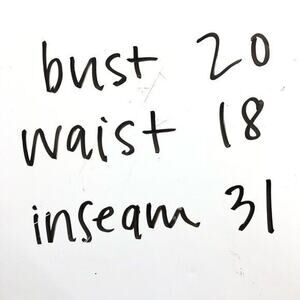 bust 20
waist 18
inseam 31